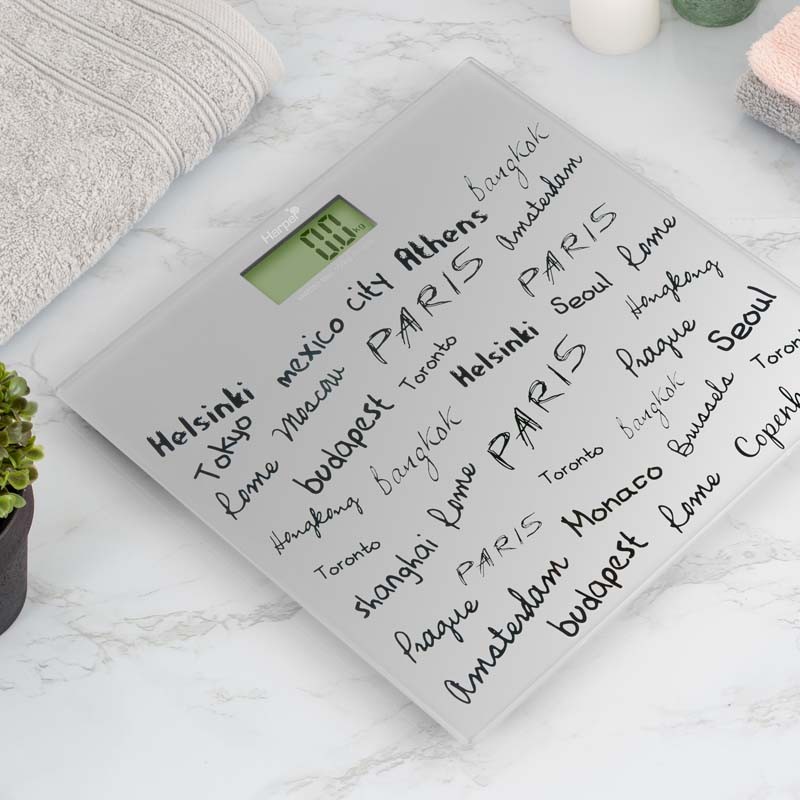 Harper
0.0 kg
Helsinki mexico city Athens Bangkok
Tokyo Moscow PARIS Amsterdam
Rome budapest Toronto Helsinki PARIS Seoul Rome
Hongkong Bangkok PARIS Hongkong
Toronto shanghai Rome Toronto Bangkok Prague Seoul
Prague PARIS Monaco Brussels Toron
Amsterdam budapest Rome Copenh